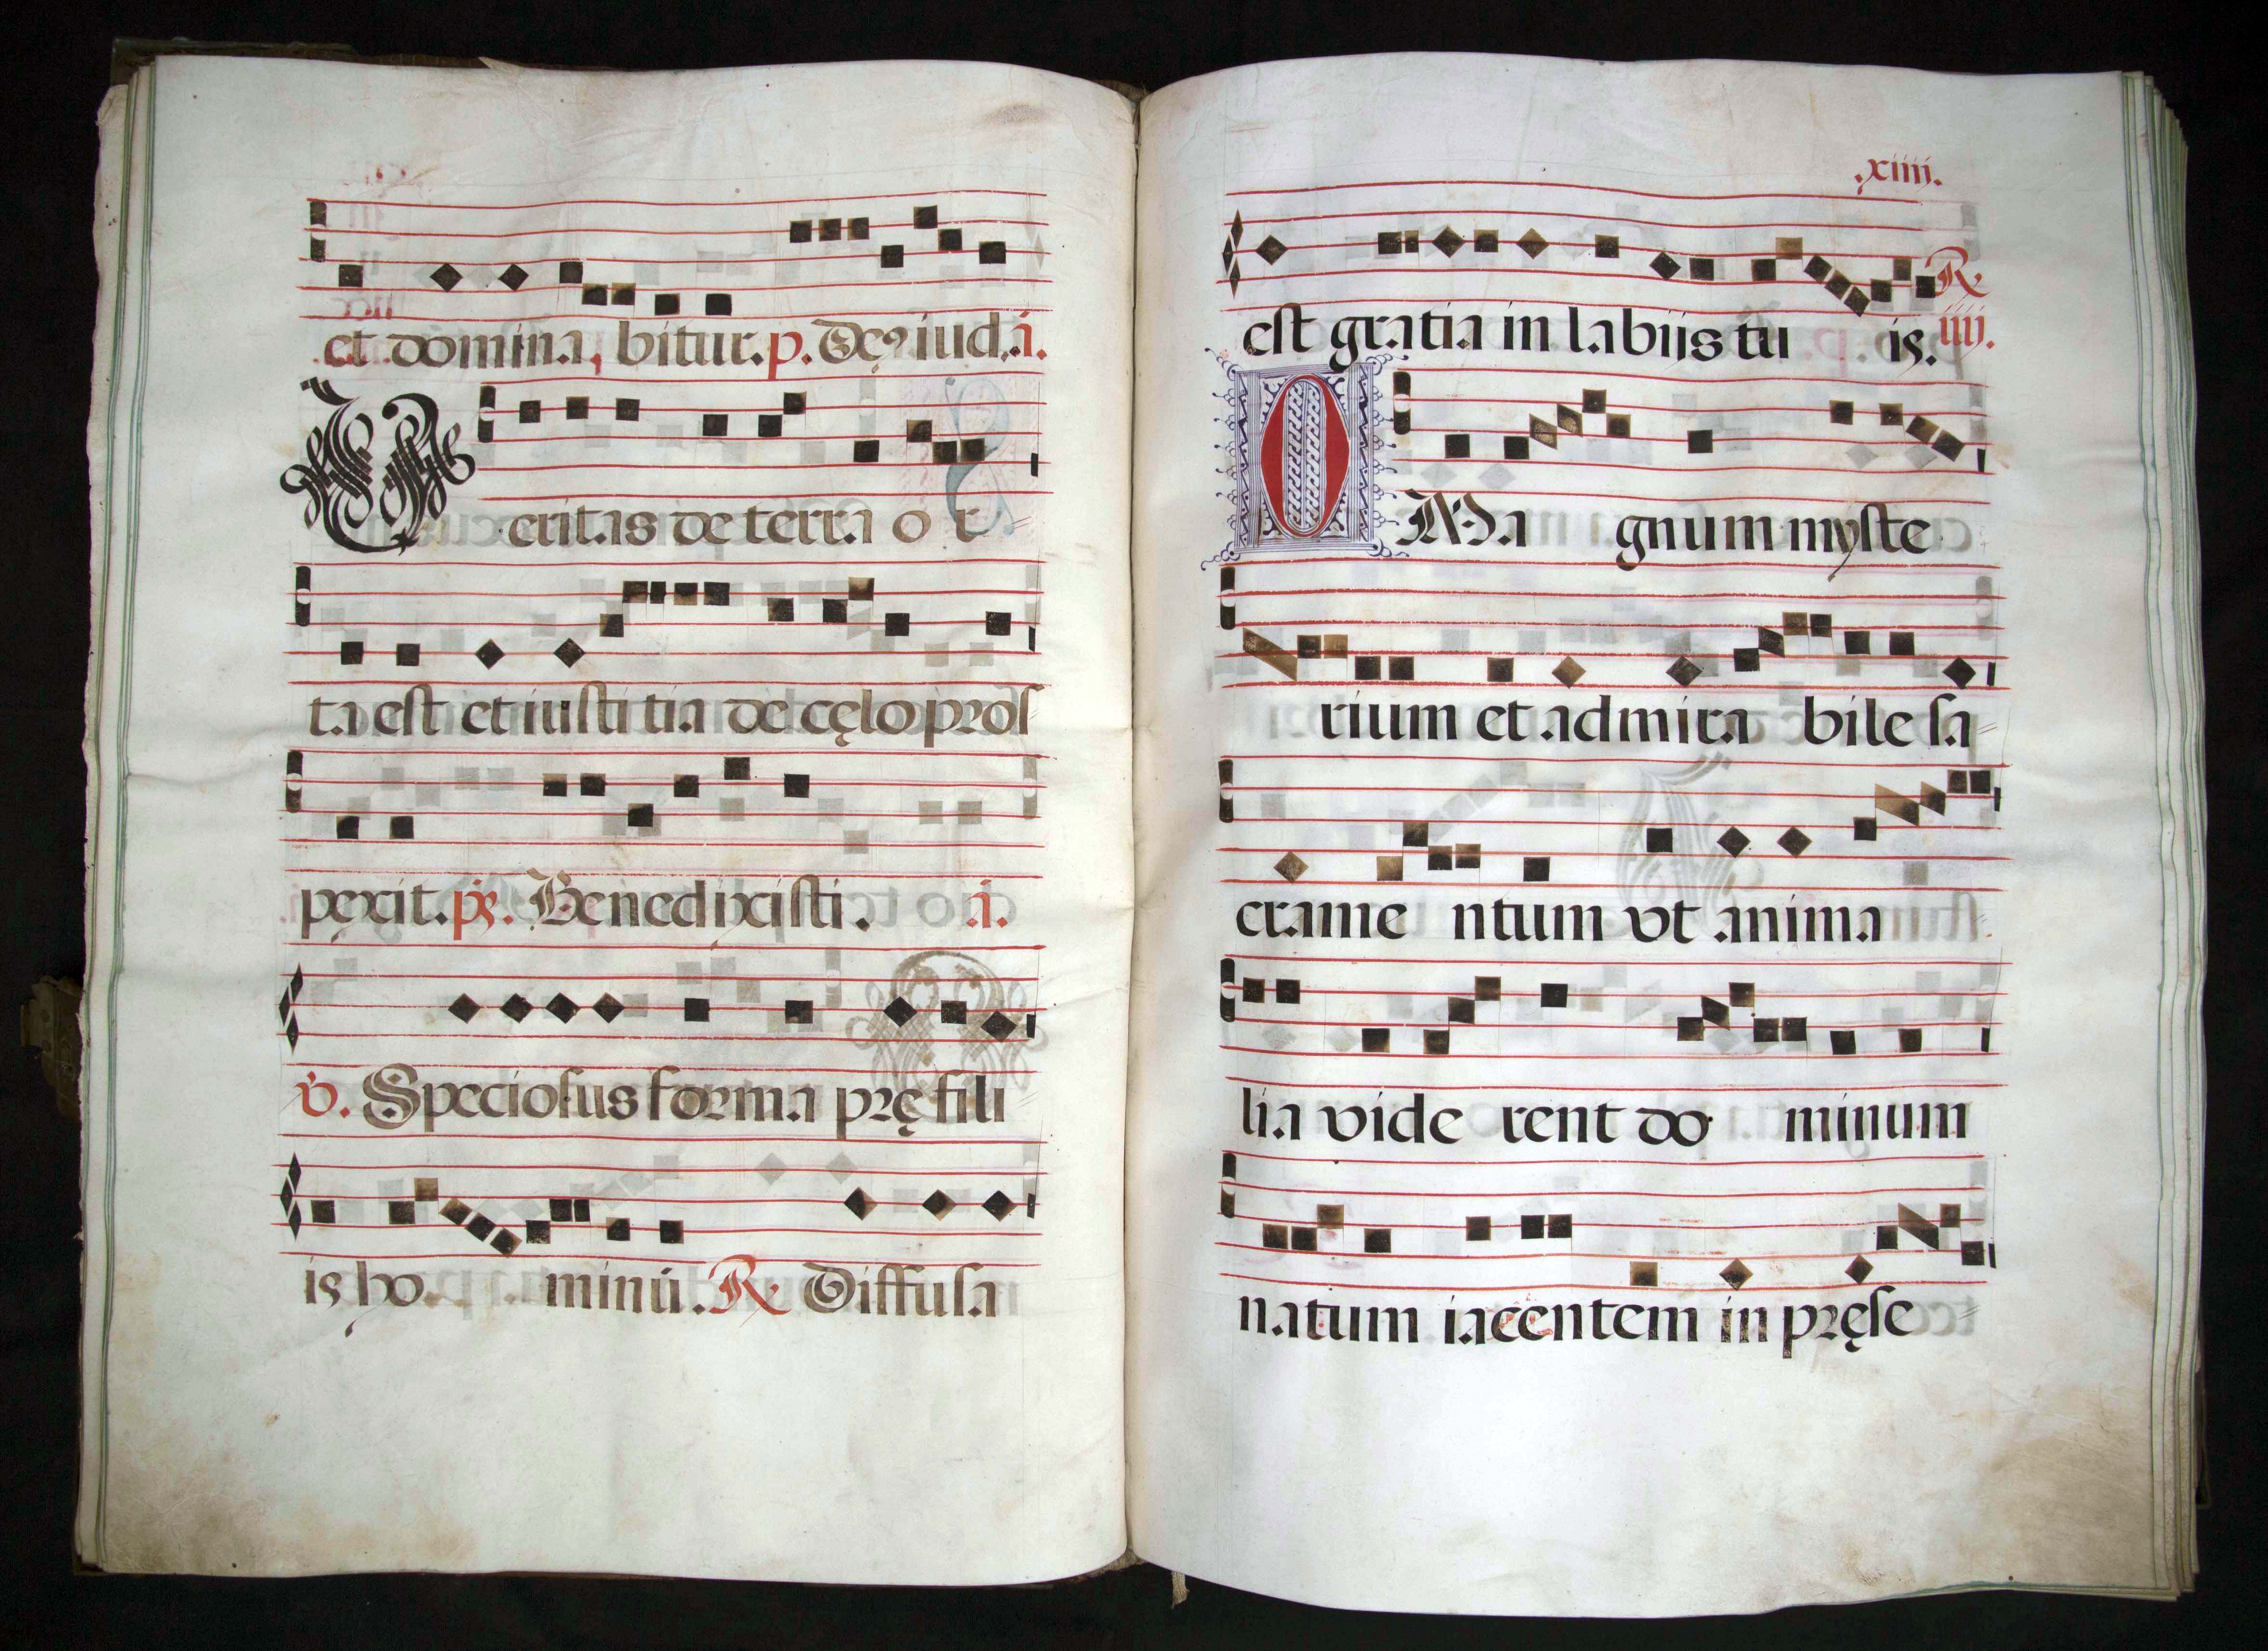 et domina bitur. p. Deꝰ iud. á.
Veritas de terra o r
ta est et iustitia de cęlo pros
pexit. ps. Benedixisti. á.
V. Speciosus forma pręfili
is ho minū. R. Diffusa
.xiiii.
est gratia in labiis tu is. R. iiii.
O Ma gnum myste
rium et admira bile sa
crame ntum vt anima
lia vide rent do minum
natum iacentem in pręse